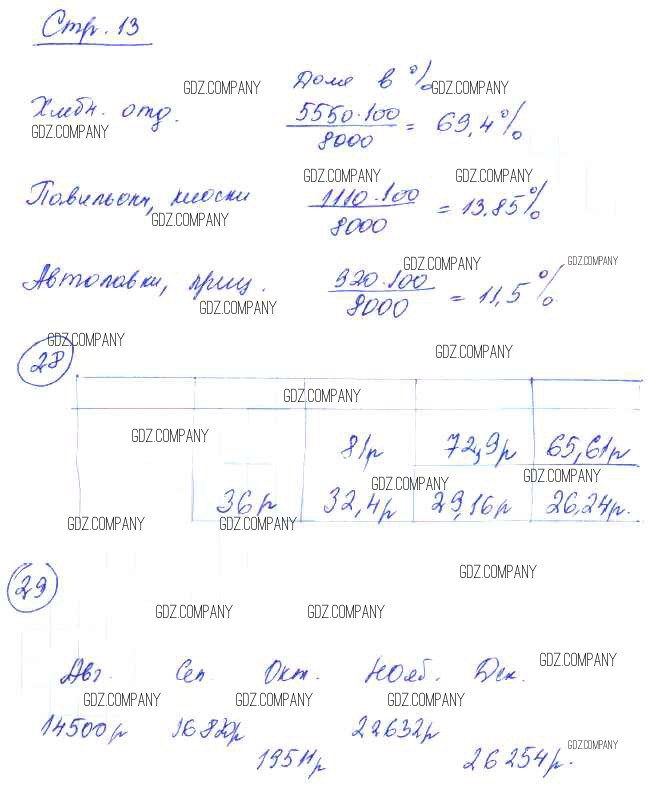 Стр. 13
Доля в %
GDZ.COMPANY GDZ.COMPANY
Хлебн. отд. 5550·100 / 8000 = 69,4%
GDZ.COMPANY
GDZ.COMPANY GDZ.COMPANY
Павильоны, киоски 1110·100 / 8000 = 13.85%
GDZ.COMPANY
GDZ.COMPANY GDZ.COMPANY
Автолавки, приц. 920·100 / 8000 = 11,5%
GDZ.COMPANY
GDZ.COMPANY
28 GDZ.COMPANY
GDZ.COMPANY
GDZ.COMPANY
81р 72,9р 65,61р
GDZ.COMPANY GDZ.COMPANY
36р 32,4р 29,16р 26,24р.
GDZ.COMPANY GDZ.COMPANY
29 GDZ.COMPANY
GDZ.COMPANY GDZ.COMPANY
Авг. Сен. Окт. Нояб. Дек. GDZ.COMPANY
GDZ.COMPANY GDZ.COMPANY GDZ.COMPANY
14500р 16820р 22632р
GDZ.COMPANY
19511р 26254р.